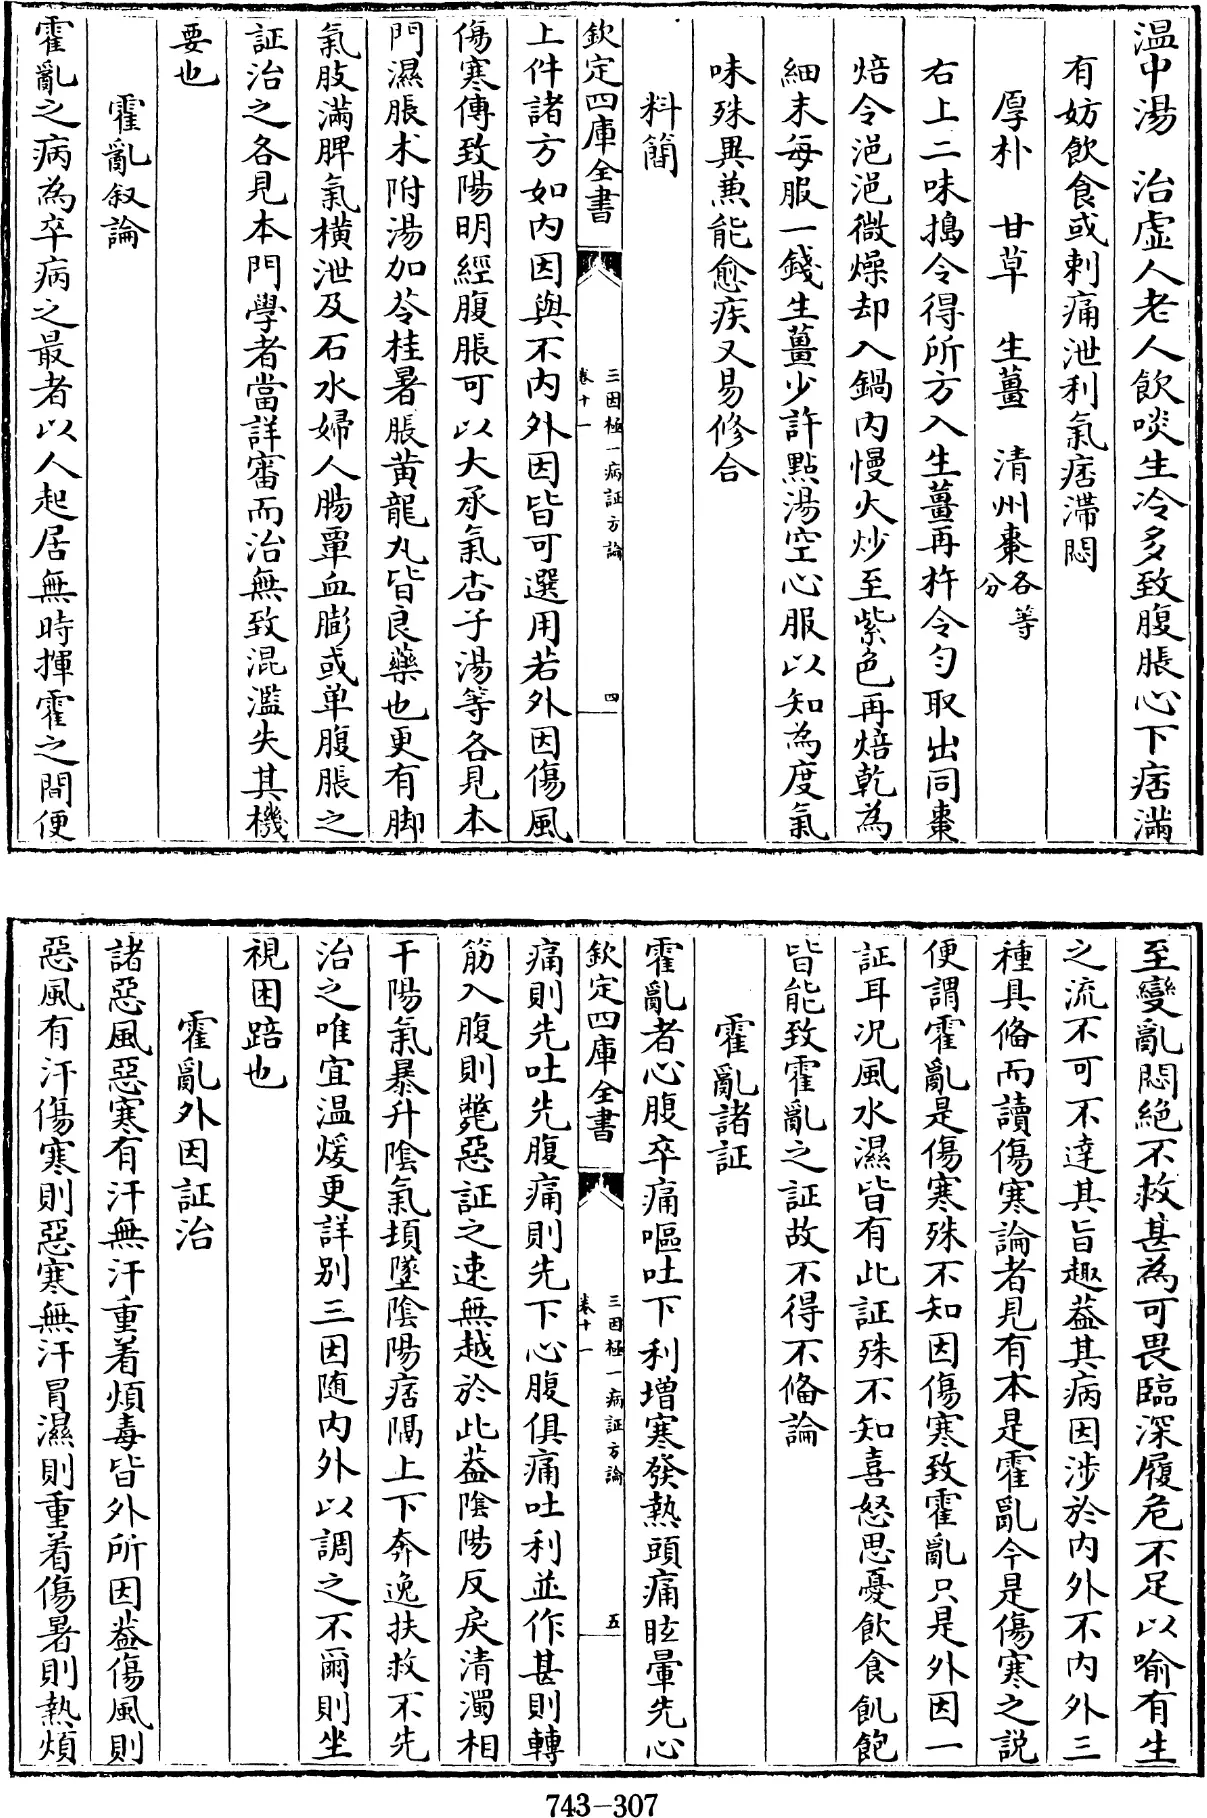 温中湯　治虛人老人飲啖生冷多致腹脹心下痞滿
有妨飲食或刺痛泄利氣痞滯悶
厚朴　甘草　生薑　清州棗各等分
右上二味搗令得所方入生薑再杵令匀取出同棗
焙令浥浥微燥却入鍋内慢火炒至紫色再焙乾為
細末每服一錢生薑少許點湯空心服以知為度氣
味殊異兼能愈疾又易修合
料簡
欽定四庫全書　三因極一病証方論　卷十一　四
上件諸方如内因與不内外因皆可選用若外因傷風
傷寒傳致陽明經腹脹可以大承氣杏子湯等各見本
門濕脹术附湯加苓桂暑脹黃龍丸皆良藥也更有脚
氣肢滿脾氣橫泄及石水婦人腸覃血膨或单腹脹之
証治之各見本門學者當詳審而治無致混濫失其機
要也
霍亂叙論
霍亂之病為卒病之最者以人起居無時揮霍之間便
至變亂悶絕不救甚為可畏臨深履危不足以喻有生
之流不可不達其旨趣葢其病因涉於内外不内外三
種具偹而讀傷寒論者見有本是霍亂今是傷寒之説
便謂霍亂是傷寒殊不知因傷寒致霍亂只是外因一
証耳况風水濕皆有此証殊不知喜怒思憂飲食飢飽
皆能致霍亂之証故不得不偹論
霍亂諸証
霍亂者心腹卒痛嘔吐下利増寒發熱頭痛眩暈先心
欽定四庫全書　三因極一病証方論　卷十一　五
痛則先吐先腹痛則先下心腹俱痛吐利並作甚則轉
筋入腹則斃惡証之速無越於此葢陰陽反戾清濁相
干陽氣暴升陰氣頓墜陰陽痞隔上下奔逸扶救不先
治之唯宜温煖更詳别三因随内外以調之不爾則坐
視困踣也
霍亂外因証治
諸惡風惡寒有汗無汗重着煩毒皆外所因葢傷風則
惡風有汗傷寒則惡寒無汗冐濕則重着傷暑則熱煩
743-307